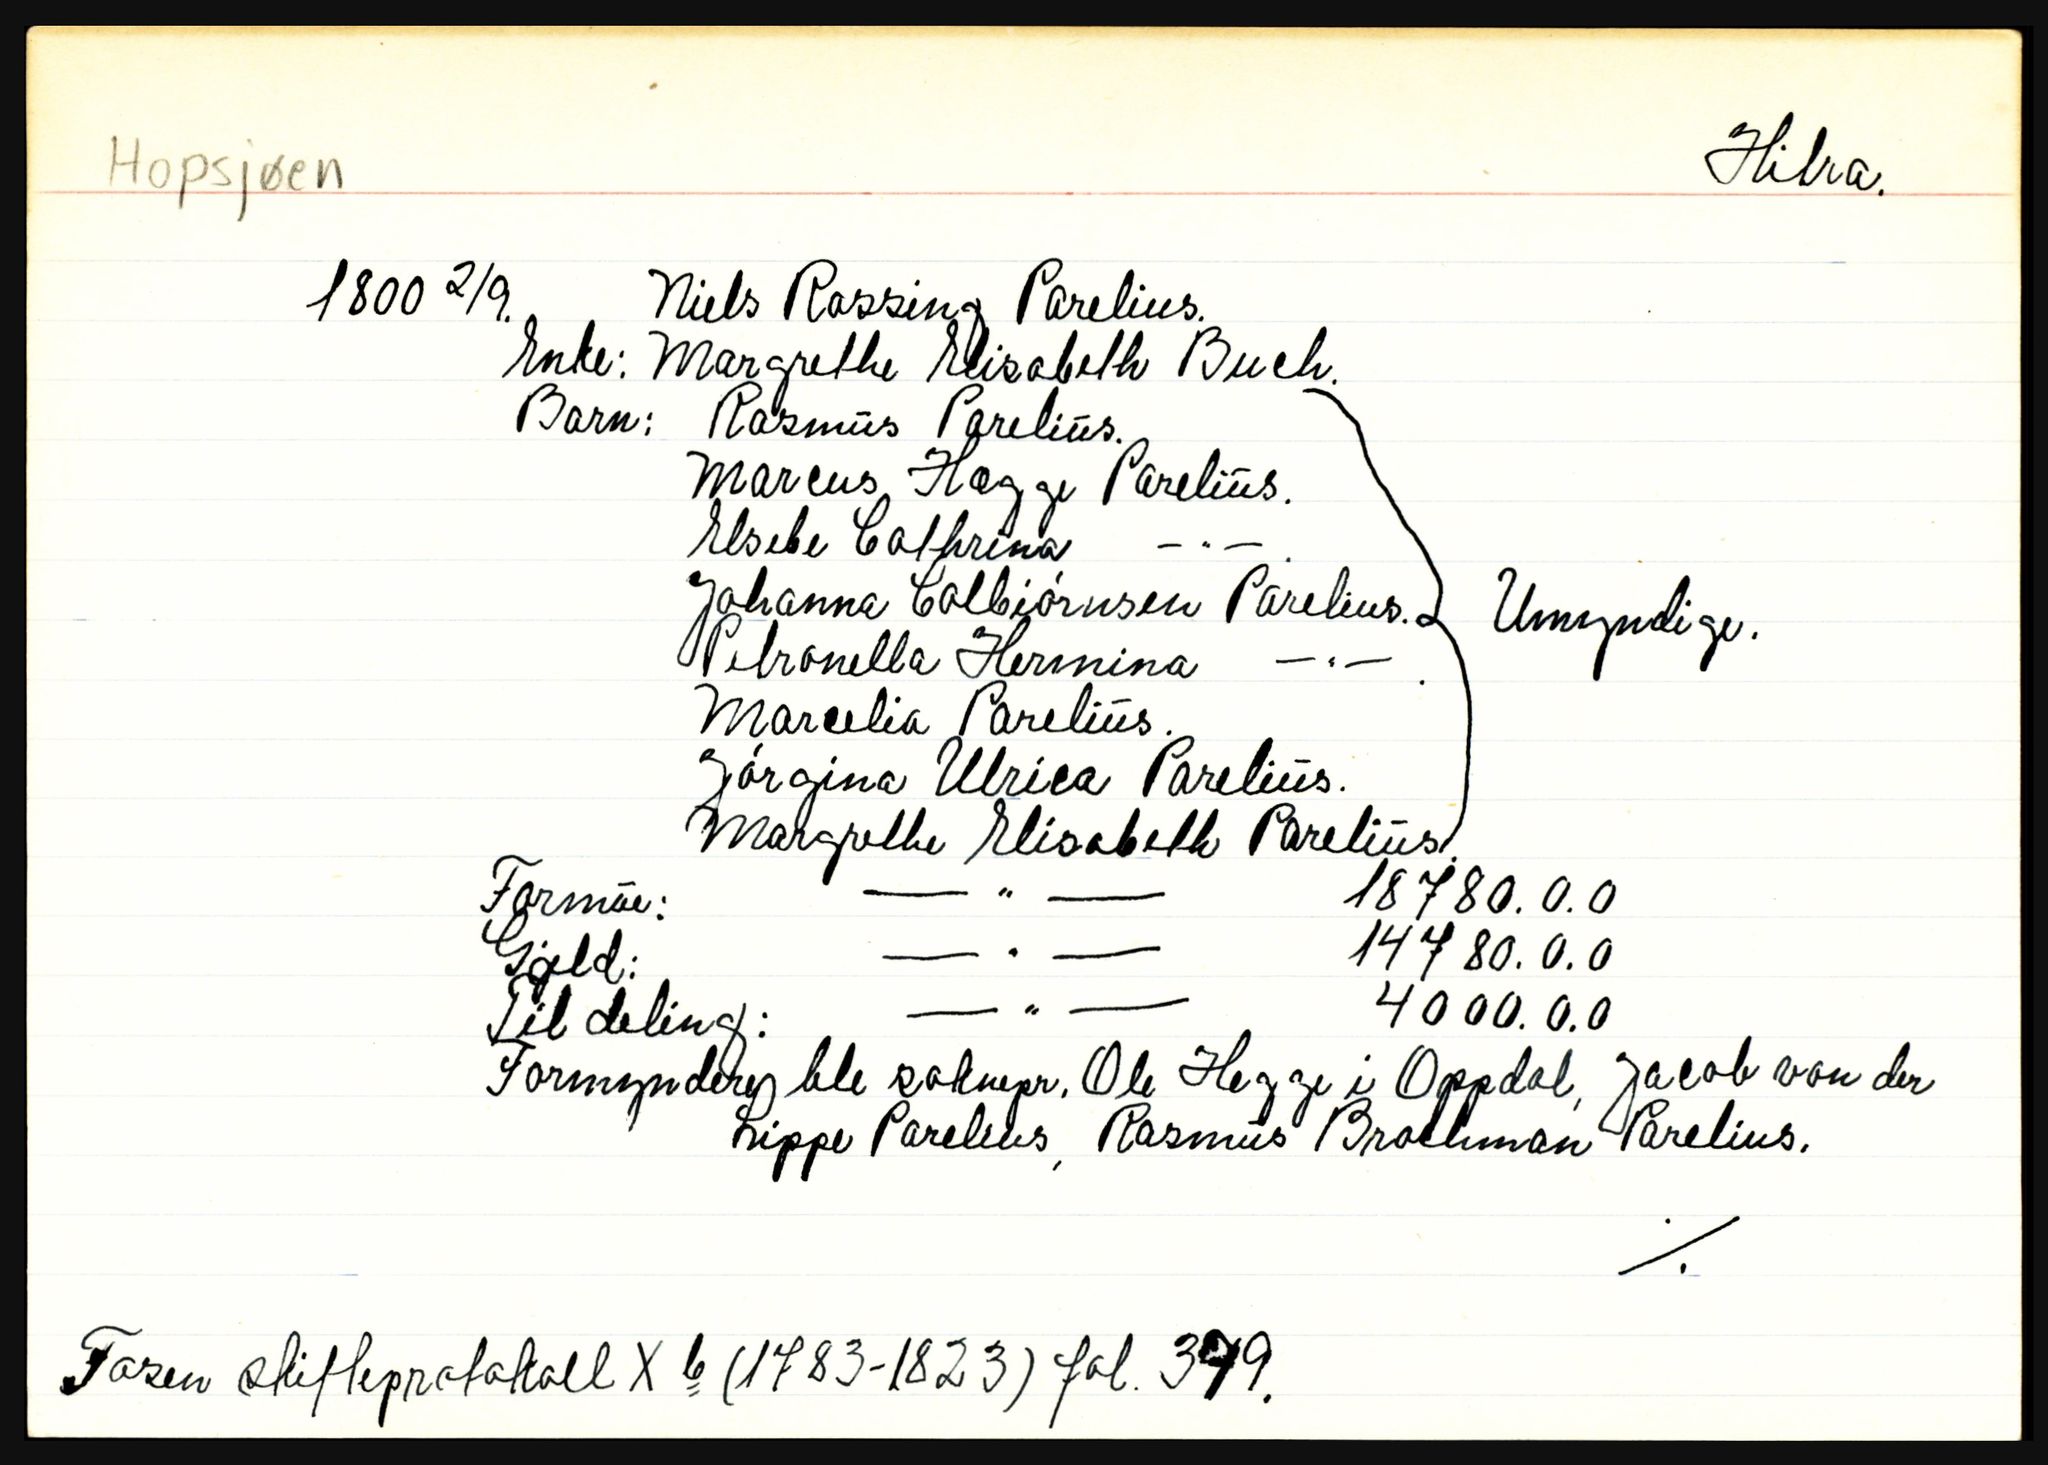 Hopsjøen
Hitra.
1800 2/9. Niels Rossing Parelius.
Enke: Margrethe Elisabeth Buch.
Barn: Rasmūs Pareliūs.
Marcus Hegge Pareliūs.
Elsebe Cathrina —"—.
Johanna Colbiórnsen Parelius.
Umyndige.
Petronella Hermina —"—.
Marcelia Pareliūs.
Jórgina Ulrica Pareliūs.
Margrethe Elisabeth Pareliūs.
Formūe: — " — 18780.0.0
Gjeld: — " — 14780.0.0
Til deling: — " — 4000.0.0
Formyndere ble soknepr. Ole Hegge i Oppdal, Jacob von der
Lippe Parelius, Rasmūs Brochman Parelius.
./.
Fosen skifteprotokoll X b (1783-1823) fol. 379.